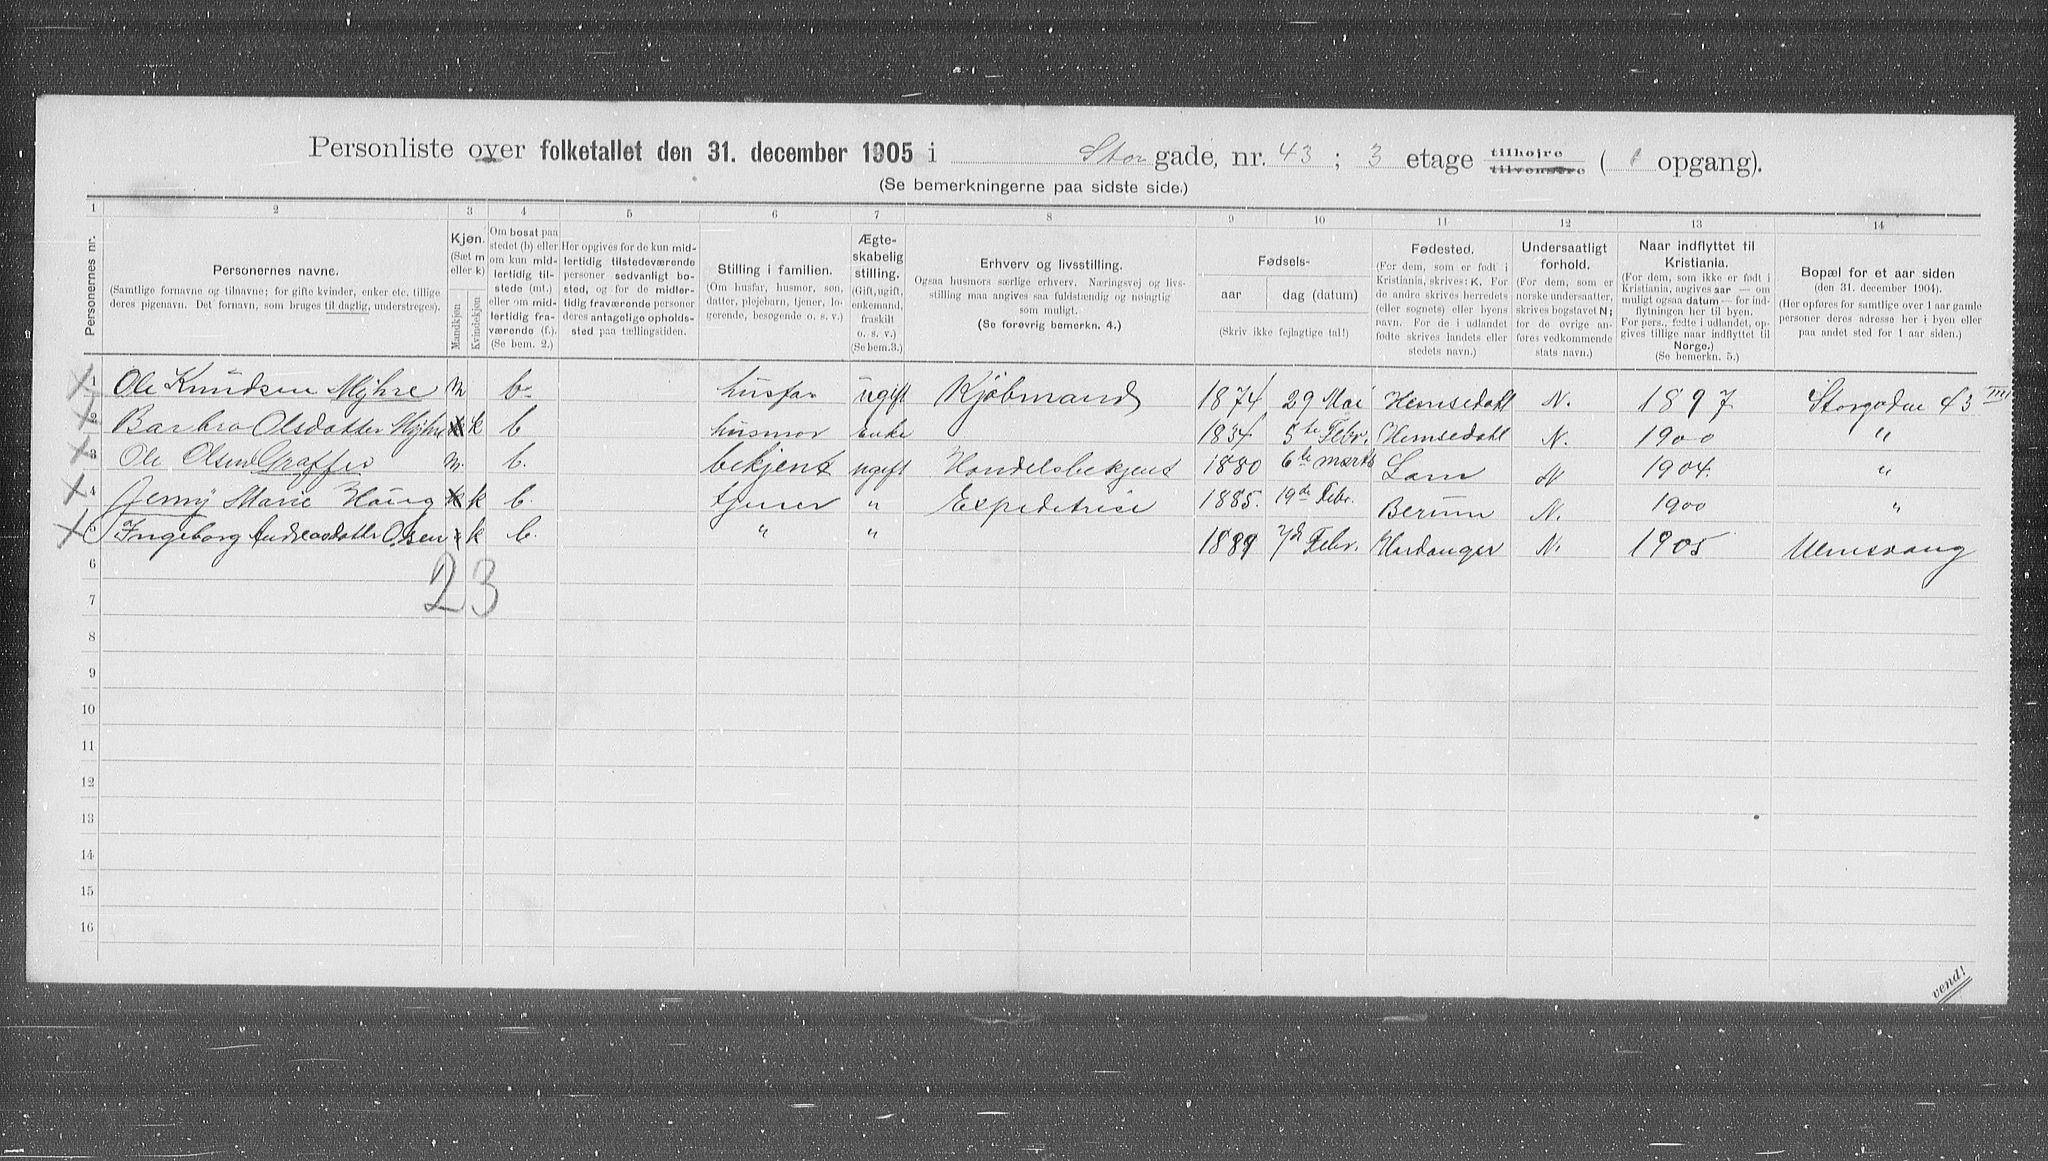 Personliste over folketallet den 31. december 1905 i Storgade, nr. 43; 3 etage tilhøjre tilvenstre (1 opgang).
(Se bemerkningerne paa sidste side.)
1 2 3 4 5 6 7 8 9 10 11 12 13 14
Personernes nr.
Personernes navne.
(Samtlige fornavne og tilnavne; for gifte kvinder, enker etc. tillige deres pigenavn. Det fornavn, som bruges til daglig, understreges).
Kjøn. (Sæt m eller k)
Mandkjøn. Kvindekjøn.
Om bosat paa stedet (b) eller om kun midlertidig tilstede (mt.) eller om midlertidig fraværende (f.). (Se bem. 2.)
Her opgives for de kun midlertidig tilstedeværende personer sedvanligt bosted, og for de midlertidig fraværende personer deres antagelige opholdssted paa tællingstiden.
Stilling i familien.
(Om husfar, husmor, søn, datter, plejebarn, tjener, logerende, besøgende o. s. v.)
Ægteskabelig stilling.
(Gift, ugift, enkemand, fraskilt o. s. v.) (Se bem.3.)
Erhverv og livsstilling.
Ogsaa husmors særlige erhverv. Næringsvej og livsstilling maa angives saa fuldstændig og nøigtig som muligt.
(Se forøvrig bemerkn. 4.)
Fødsels-
aar dag (datum)
(Skriv ikke fejlagtige tal!)
Fødested.
(For dem, som er født i Kristiania, skrives: K. For de andre skrives herredets (eller sognets) eller byens navn. For de i udlandet fødte skrives landets eller stedets navn.)
Undersaatligt forhold.
(For dem, som er norske undersaatter, skrives bogstavet N; for de øvrige anføres vedkommende stats navn.)
Naar indflyttet til Kristiania.
(For dem, som ikke er født i Kristiania, angives aar — om muligt ogsaa datum — for indflytningen her til byen. For pers., fødte i udlandet, opgives tillige naar indflyttet til Norge.)
(Se bemerkn. 5.)
Bopæl for et aar siden
(den 31. december 1904).
(Her opføres for samtlige over 1 aar gamle personer deres adresse her i byen eller paa andet sted for 1 aar siden.)
1 Ole Knudsen Myhre m b. husfar ugift Kjøbmand 1874 29 Mai Hemsedahl N. 1897 Storgaden 43 III
2 Barbro Olsdatter Myhre k b husmor Enke 1834 5te Febr. Hemsedahl N. 1900 "
3 Ole Olsen m. b. betjent ugift Handelsbetjent 1880 6te marts Lom N 1904. "
4 Jenny Marie Haug k b. tjener " Expeditrise 1885. 19de Febr. Berum N. 1900 "
5 Ingeborg Andreasdatter Olsen k b. " " 1889 7de Febr. Hardanger N. 1905
6
23
7
8
9
10
11
12
13
14
15
16
vend!